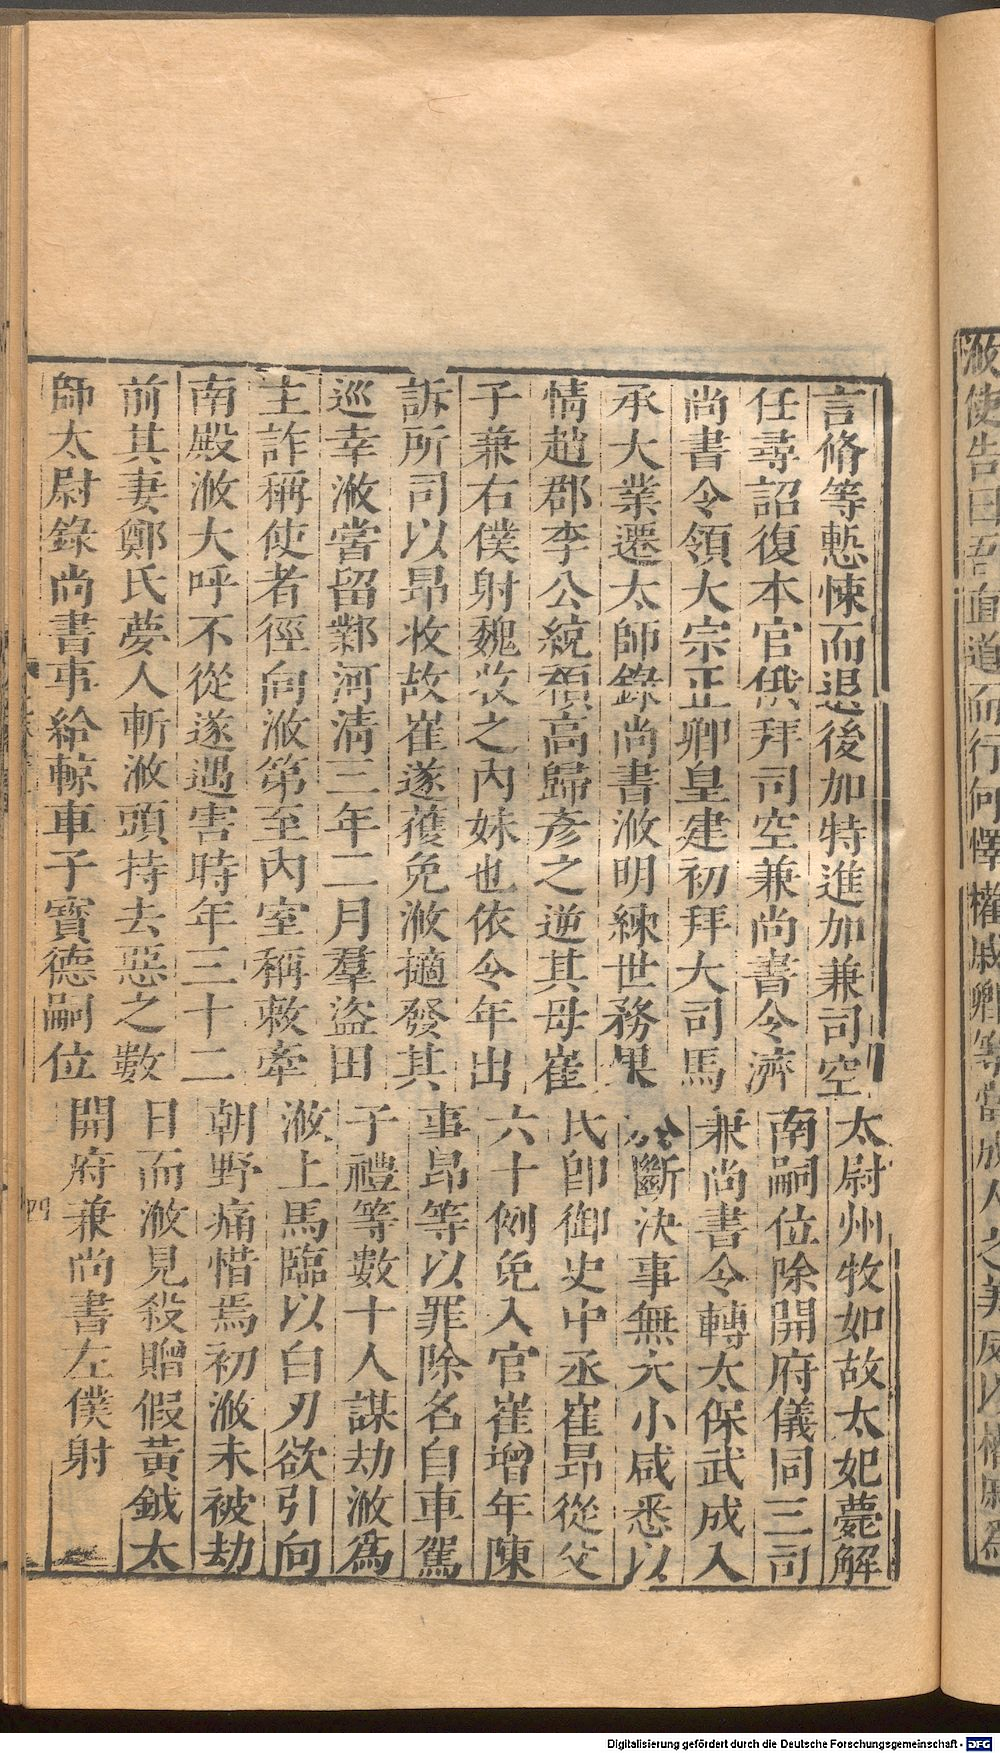 浟使告曰吾直道而行何憚權戚卿等當成人之美反以權戚為
言脩等慙悚而退後加特進加兼司空太尉州牧如故太妃薨解
任尋詔復本官俄拜司空兼尚書令濟南嗣位除開府儀同三司
尚書令領大宗正卿皇建初拜大司馬兼尚書令轉太保武成入
承大業遷太師錄尚書浟明練世務果於斷決事無大小咸悉以
情趙郡李公統預高歸彥之逆其母崔氏即御史中丞崔昂從父
子兼右僕射魏收之內妹也依令年出六十例免入官崔增年陳
訴所司以昂收故崔遂獲免浟擿發其事昂等以罪除名自車駕
巡幸浟嘗留鄴河清三年二月羣盜田子禮等數十人謀劫浟爲
主詐稱使者徑向浟第至內室稱敕牽浟上馬臨以白刃欲引向
南殿浟大呼不從遂遇害時年三十二朝野痛惜焉初浟未被劫
前其妻鄭氏夢人斬浟頭持去惡之數日而浟見殺贈假黃鉞太
師太尉錄尚書事給輬車子寶德嗣位開府兼尚書左僕射
Digitalisierung gefördert durch die Deutsche Forschungsgemeinschaft - DFG